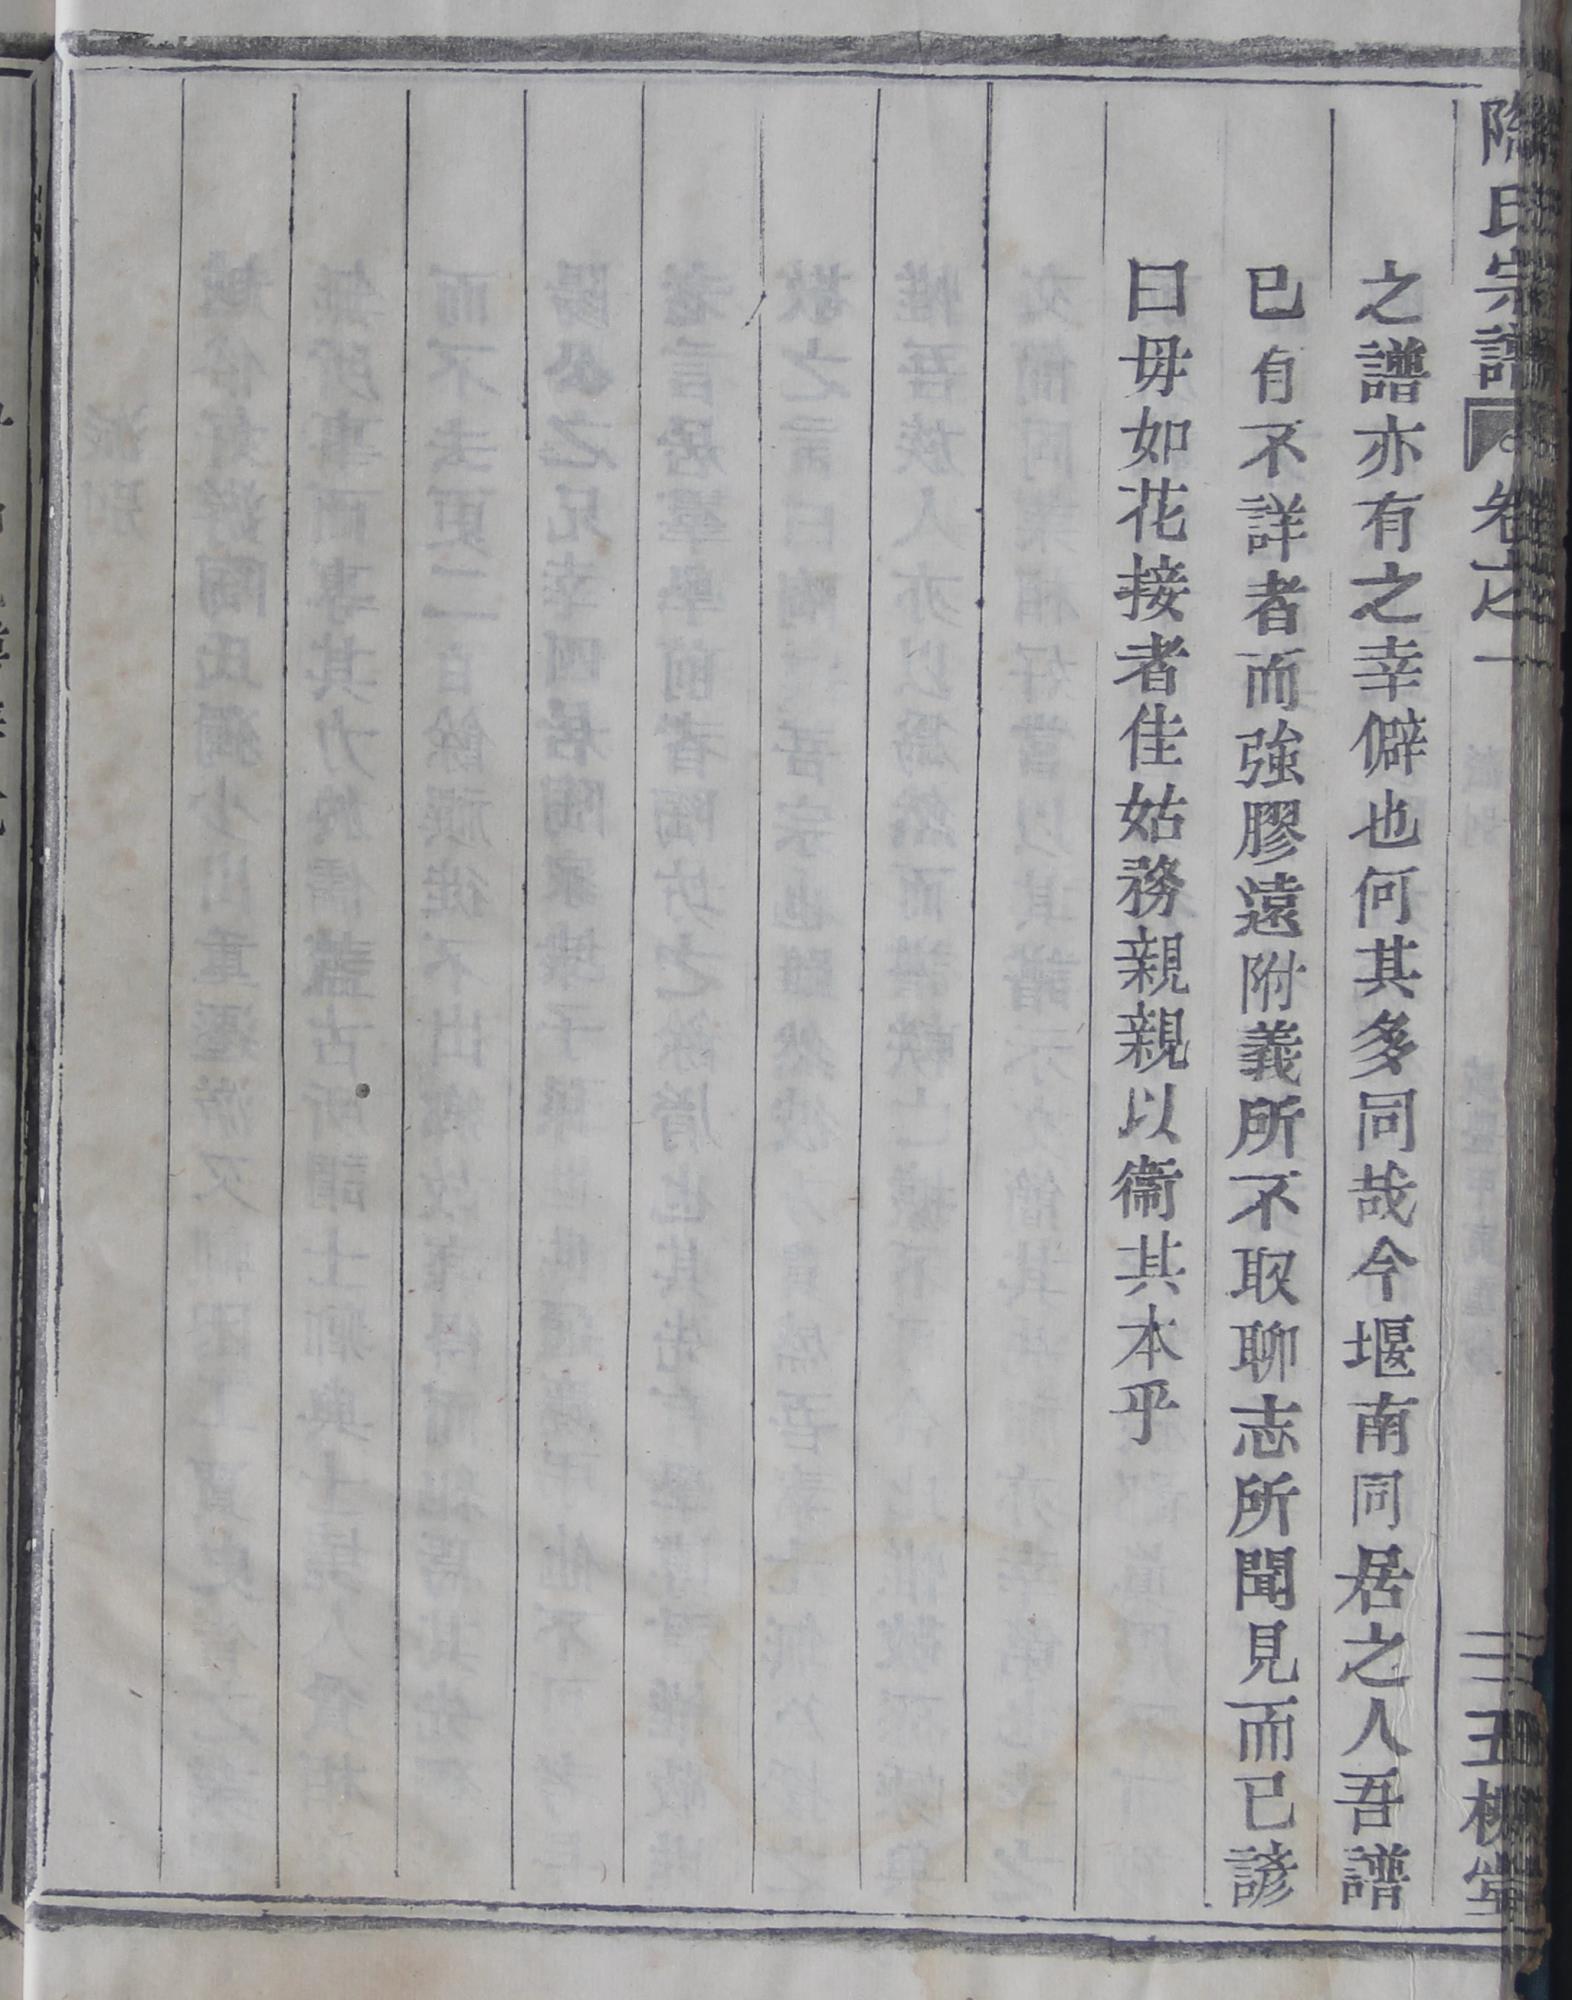 陶氏宗譜 卷之一 三 五柳堂
之譜亦有之幸僻也何其多同哉今堰南同居之人吾譜
已有不詳者而強膠遠附義所不取聊志所聞見而已諺
曰毋如花接者佳姑務親親以衞其本乎